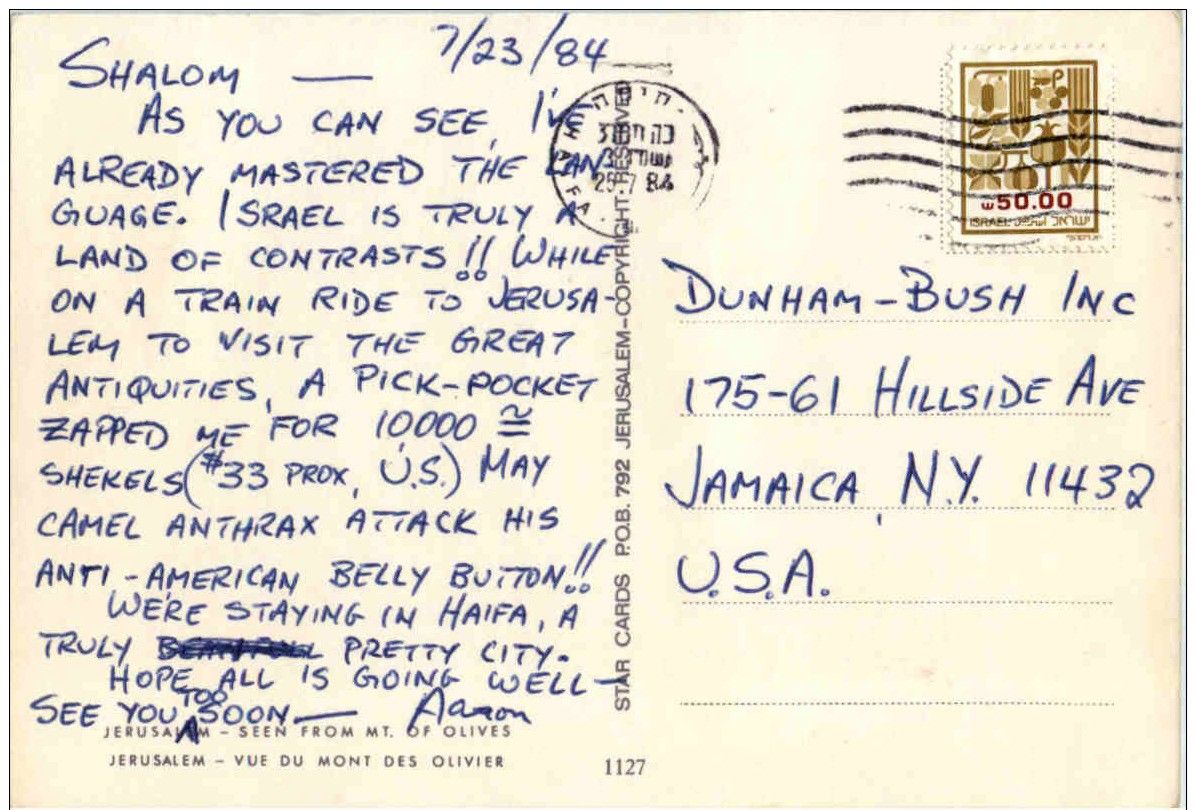 7/23/84
SHALOM —
AS YOU CAN SEE, I'VE
ALREADY MASTERED THE LAN-
GUAGE. ISRAEL IS TRULY A
LAND OF CONTRASTS!! WHILE
ON A TRAIN RIDE TO JERUSA-
LEM TO VISIT THE GREAT
ANTIQUITIES, A PICK-POCKET
ZAPPED ME FOR 10000 ≅
SHEKELS (#33 PROX, U.S.) MAY
CAMEL ANTHRAX ATTACK HIS
ANTI-AMERICAN BELLY BUTTON!!
WE'RE STAYING IN HAIFA, A
TRULY PRETTY CITY.
HOPE ALL IS GOING WELL—
TOO
SEE YOU SOON — Aaron
JERUSALEM – SEEN FROM MT. OF OLIVES
JERUSALEM – VUE DU MONT DES OLIVIER
1127
STAR CARDS P.O.B. 792 JERUSALEM–COPYRIGHT RESERVED
חיפה
HAIFA
25.7 84
50.00
ISRAEL اسرائيل ישראל
DUNHAM-BUSH INC
175-61 HILLSIDE AVE
JAMAICA, N.Y. 11432
U.S.A.